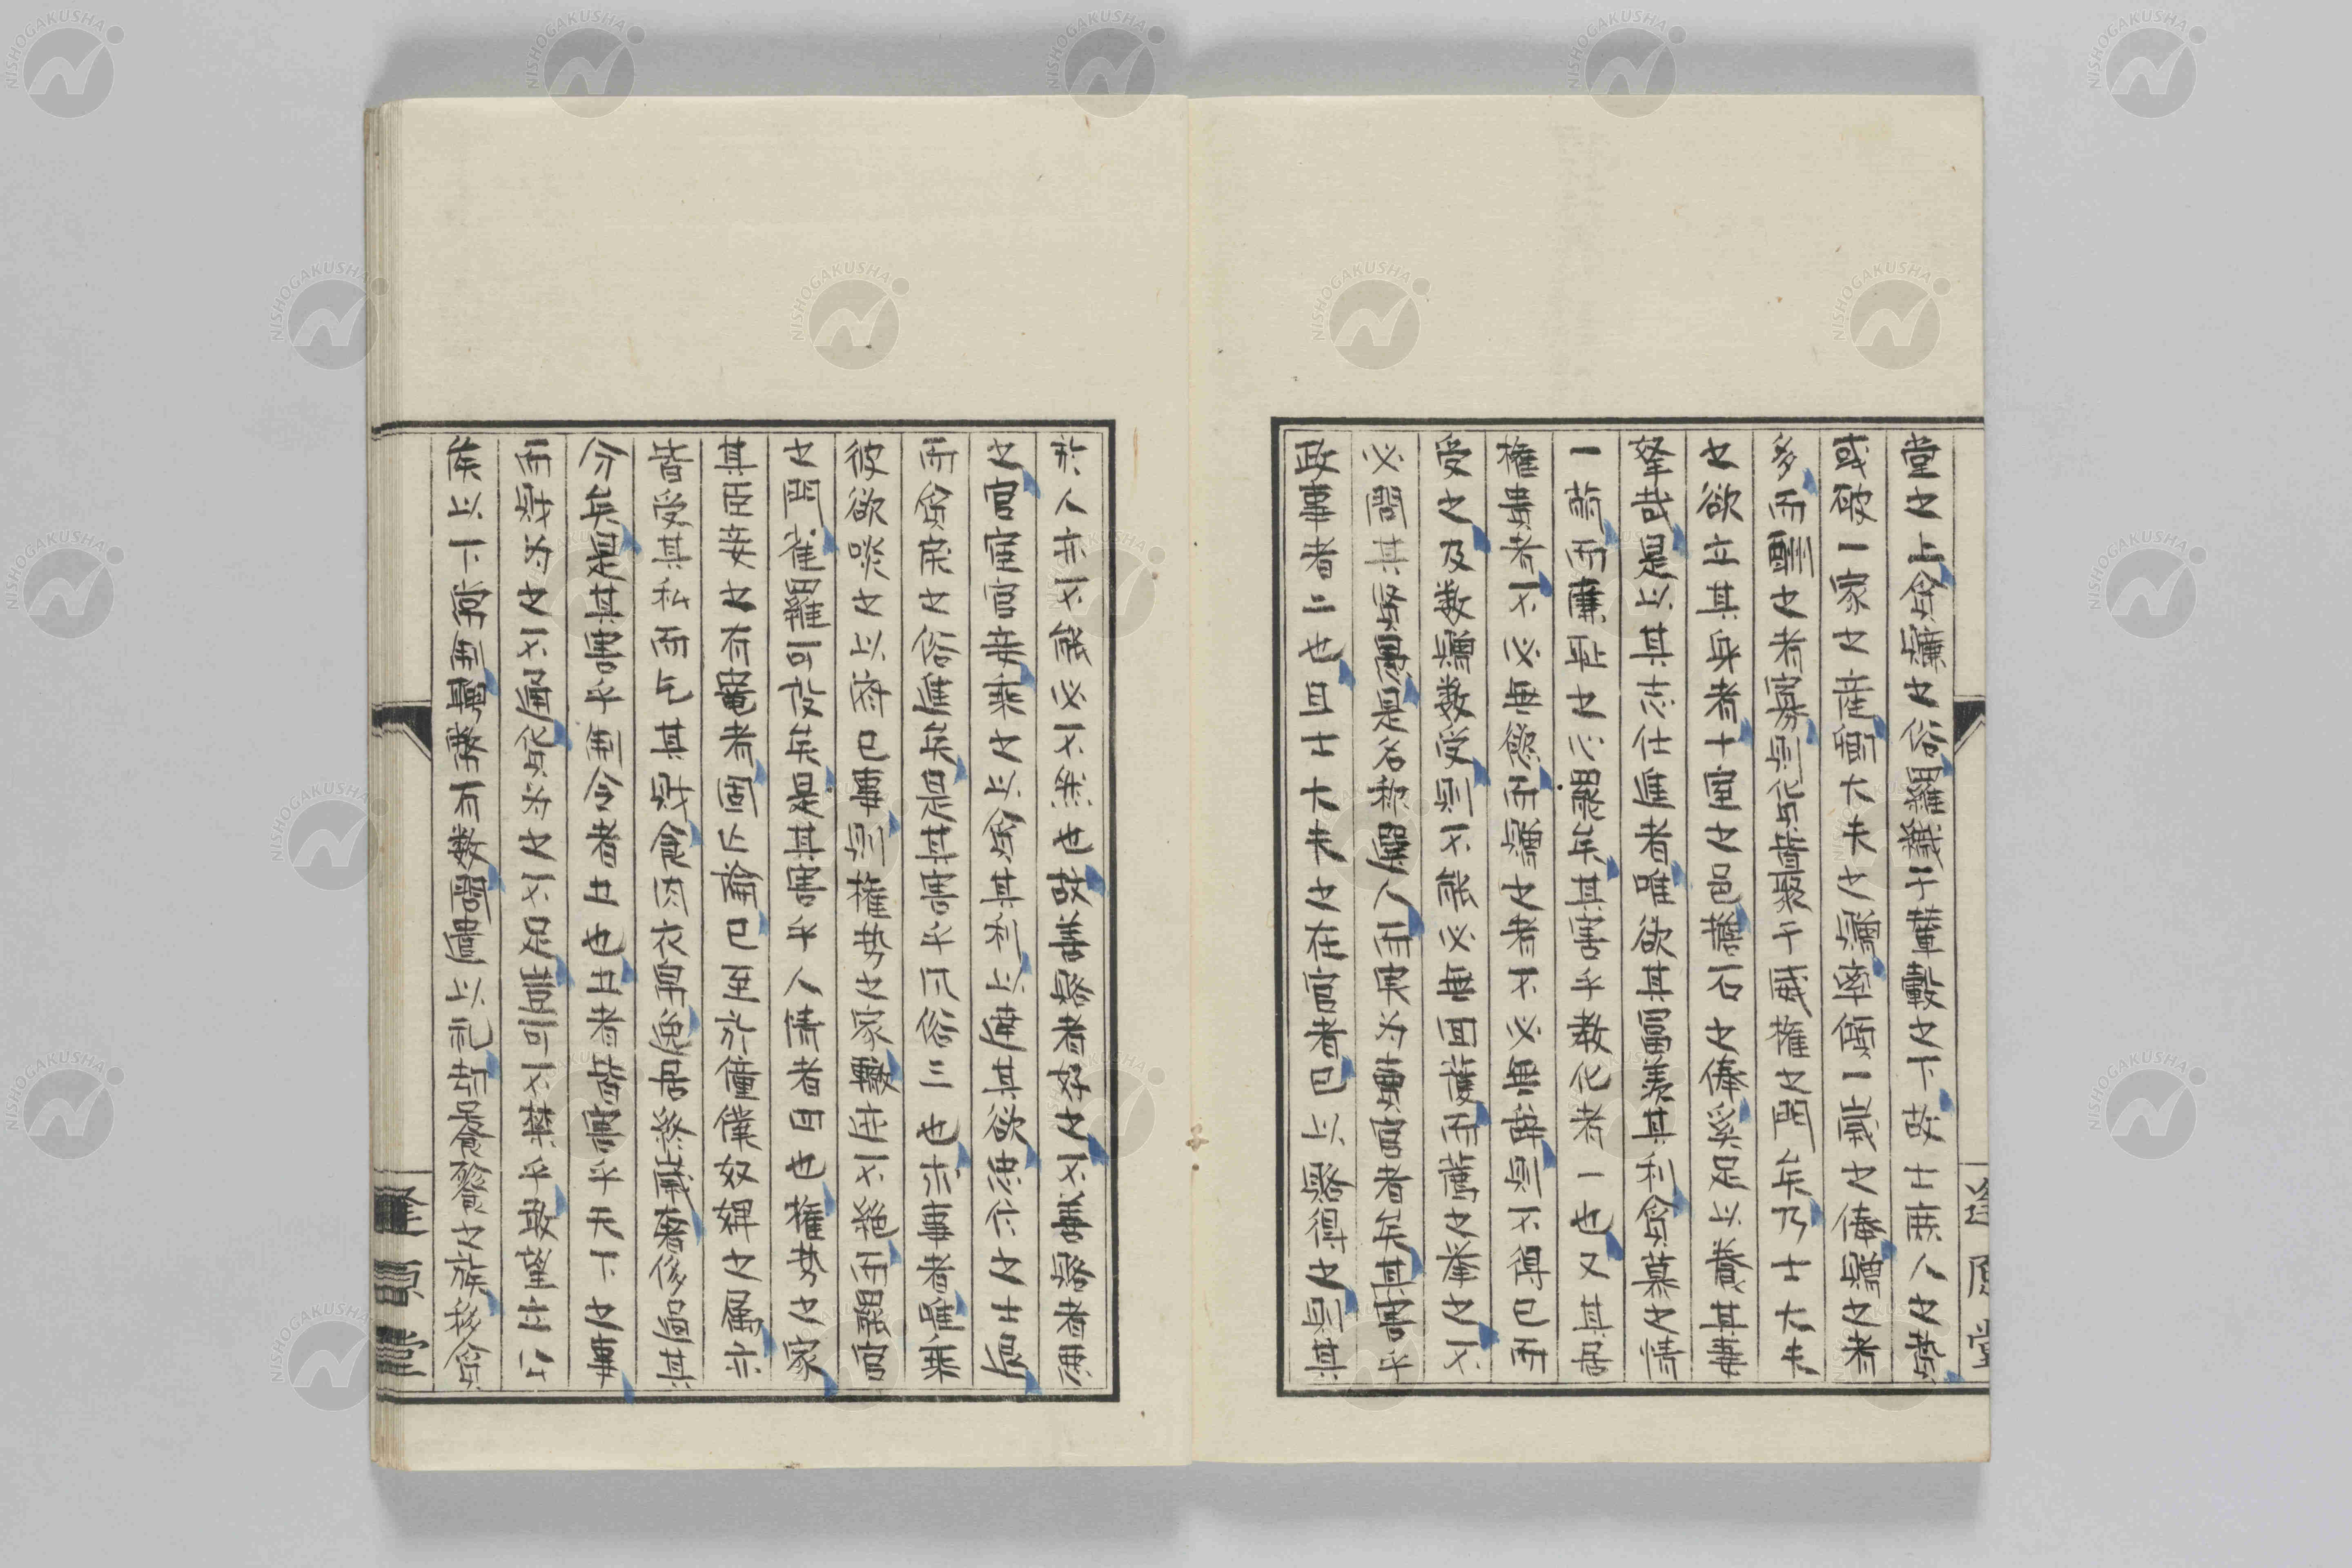 堂之上貪濁之俗羅織于輦轂之下故士庶人之贄
或破一家之産卿大夫之贈率傾一歳之俸贈之者
多而酬之者寡則貨皆聚于威權之門矣乃士大夫
之欲立其身者十室之邑擔石之俸奚足以養其妻
孥哉是以其志仕進者唯欲其富羨其利貪慕之情
一萌而廉恥之心罷矣其害乎教化者一也又其居
權貴者不必無慾而贈之者不必無辞則不得已而
受之及数贈数受則不能必無回護而薦之挙之不
必問其賢愚是名称選人用実為賣官者矣其害乎
政事者二也曰士大夫之在官者已以賂得之則其
於人亦不能必不然也故善賂者好之不善賂者悪
之官宦官妾乗之以貪其利以使其欲洪介之士退
而貪冒之俗進矣是其害乎風俗三也亦事者唯乗
彼欲啖之以済已事則權勢之家轂击不絶而罷官
之門雀羅可設矣是其害乎人情者四也權勢之家
其臣妾之有寵者固亡論已至於僮僕奴婢之属亦
皆受其私而乞其財食肉衣帛逸居終歳奢侈過其
分矣是其害乎国令者五也五者皆害乎天下之事
而財為之不通貨為之不足豈可不禁乎敢望庄公
侯以下常国聘幣有数問遺以礼苟是饕餮之族穢貨
逢原堂
逢原堂